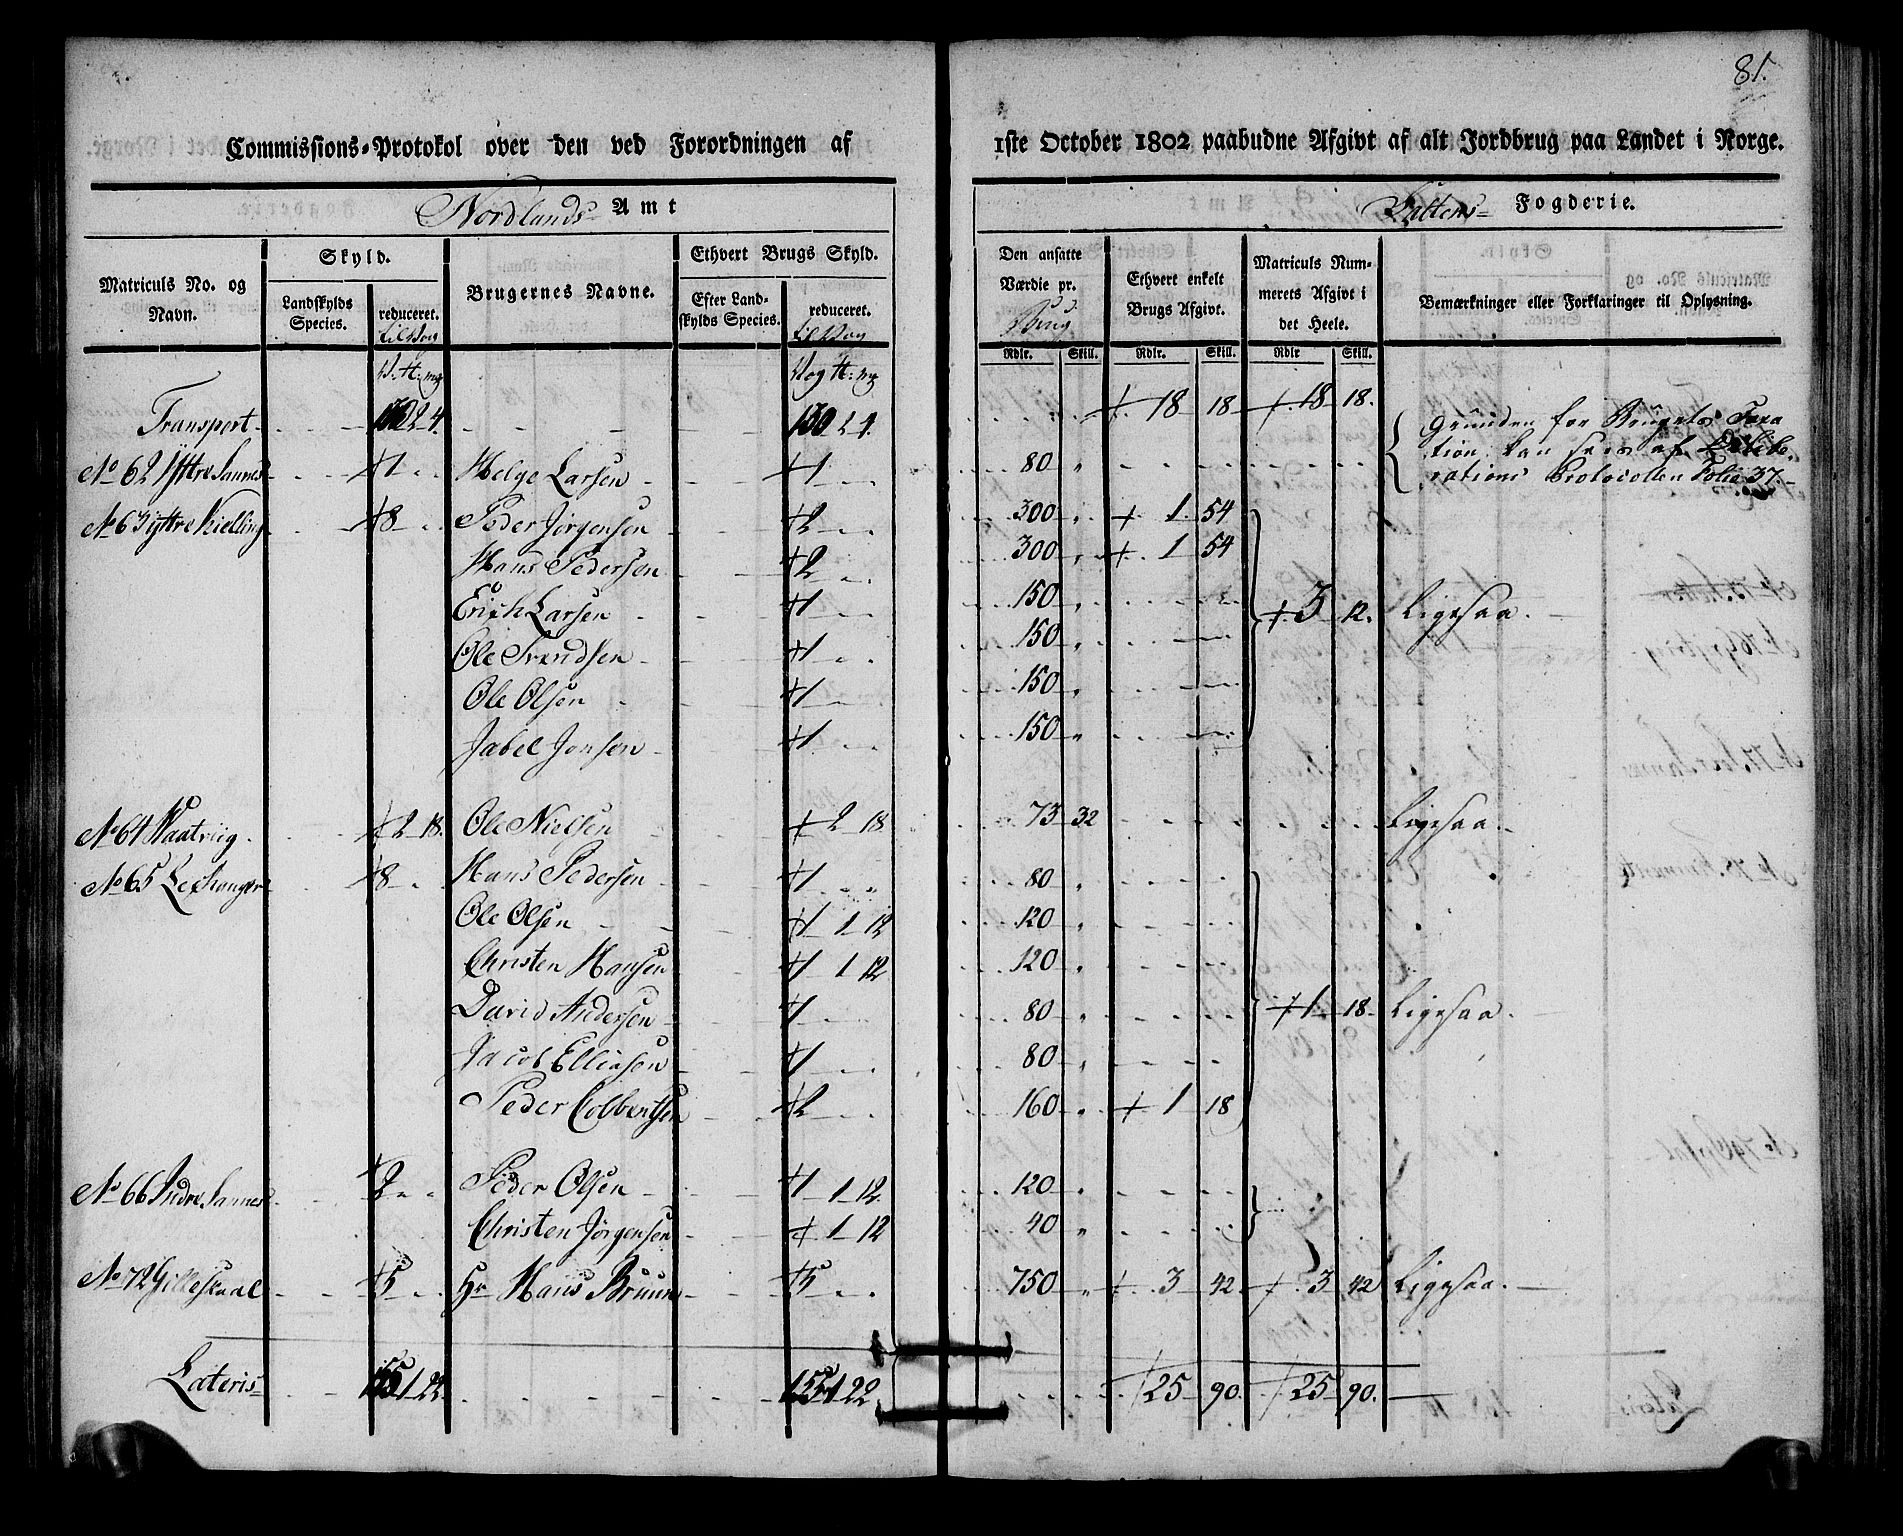 81.
Commissions-Protokol over den ved Forordningen af 1ste October 1802 paabudne Afgivt af alt Jordbrug paa Landet i Norge.
Nordlands Amt Saltens Fogderie.
Matriculs No. og Navn.
Skyld.
Landskylds Species.
reduceret.
Brugernes Navne.
Ethvert Brugs Skyld.
Efter Landskylds Species.
reduceret.
Den ansatte Værdie pr. Brug
Ethvert enkelt Brugs Afgivt.
Matriculs Nummerets Afgivt i det Heele.
Bemærkninger eller Forklaringer til Oplysning.
Rdlr. Skill. Rdlr. Skill. Rdlr Skill.
Transport 150 2 4. 150 2 4. 18 18 18 18.
No 62 Yttre Sannes 1 Helge Larsen 1 80 Grunden for Brugets Taxation kan sees af Deliberations Protocollen Folio 37.
No 63 Yttre Kielling 8 Peder Jörgensen 2 300 1 54
Hans Pedersen 2 300 1 54
Erich Larsen 1 150 3 12. Ligesaa.
Ole Trondsen 1 150
Ole Olsen 1 150
Jabel Jonsen 1 150
No 64 Vaatviig 2 18. Ole Nielsen 2 18 73 32 Ligesaa.
No 65 8 Hans Pedersen 1 80
Ole Olsen 1 1 12 120
Christen Hansen 1 1 12 120
David Andersen 1 80 1 18 Ligesaa.
Jacob Elliasen 1 80
Peder Colbentsen 2 160 1 18
No 66 Indre Sannes 2 Peder Olsen 1 1 12 120
Christen Jörgensen 1 12 40
No 72 Gilleskaal 5 Hr Hans Bruun 5 750 3 42 3 42 Ligesaa.
Lateris 155 1 22 155 1 22 25 90. 25 90.